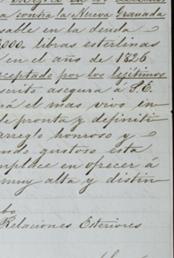 contra la Nueva Granada
sable en la deuda
,000, libras esterlinas
en el año de 1826
ceptado por los legítimos
scrito asegura á S.E.
rá el mas vivo in
de pronta y definiti
arreglo honroso y
gustoso esta
mplace en ofrecer á
muy alta y distin
Relaciones Esteriores